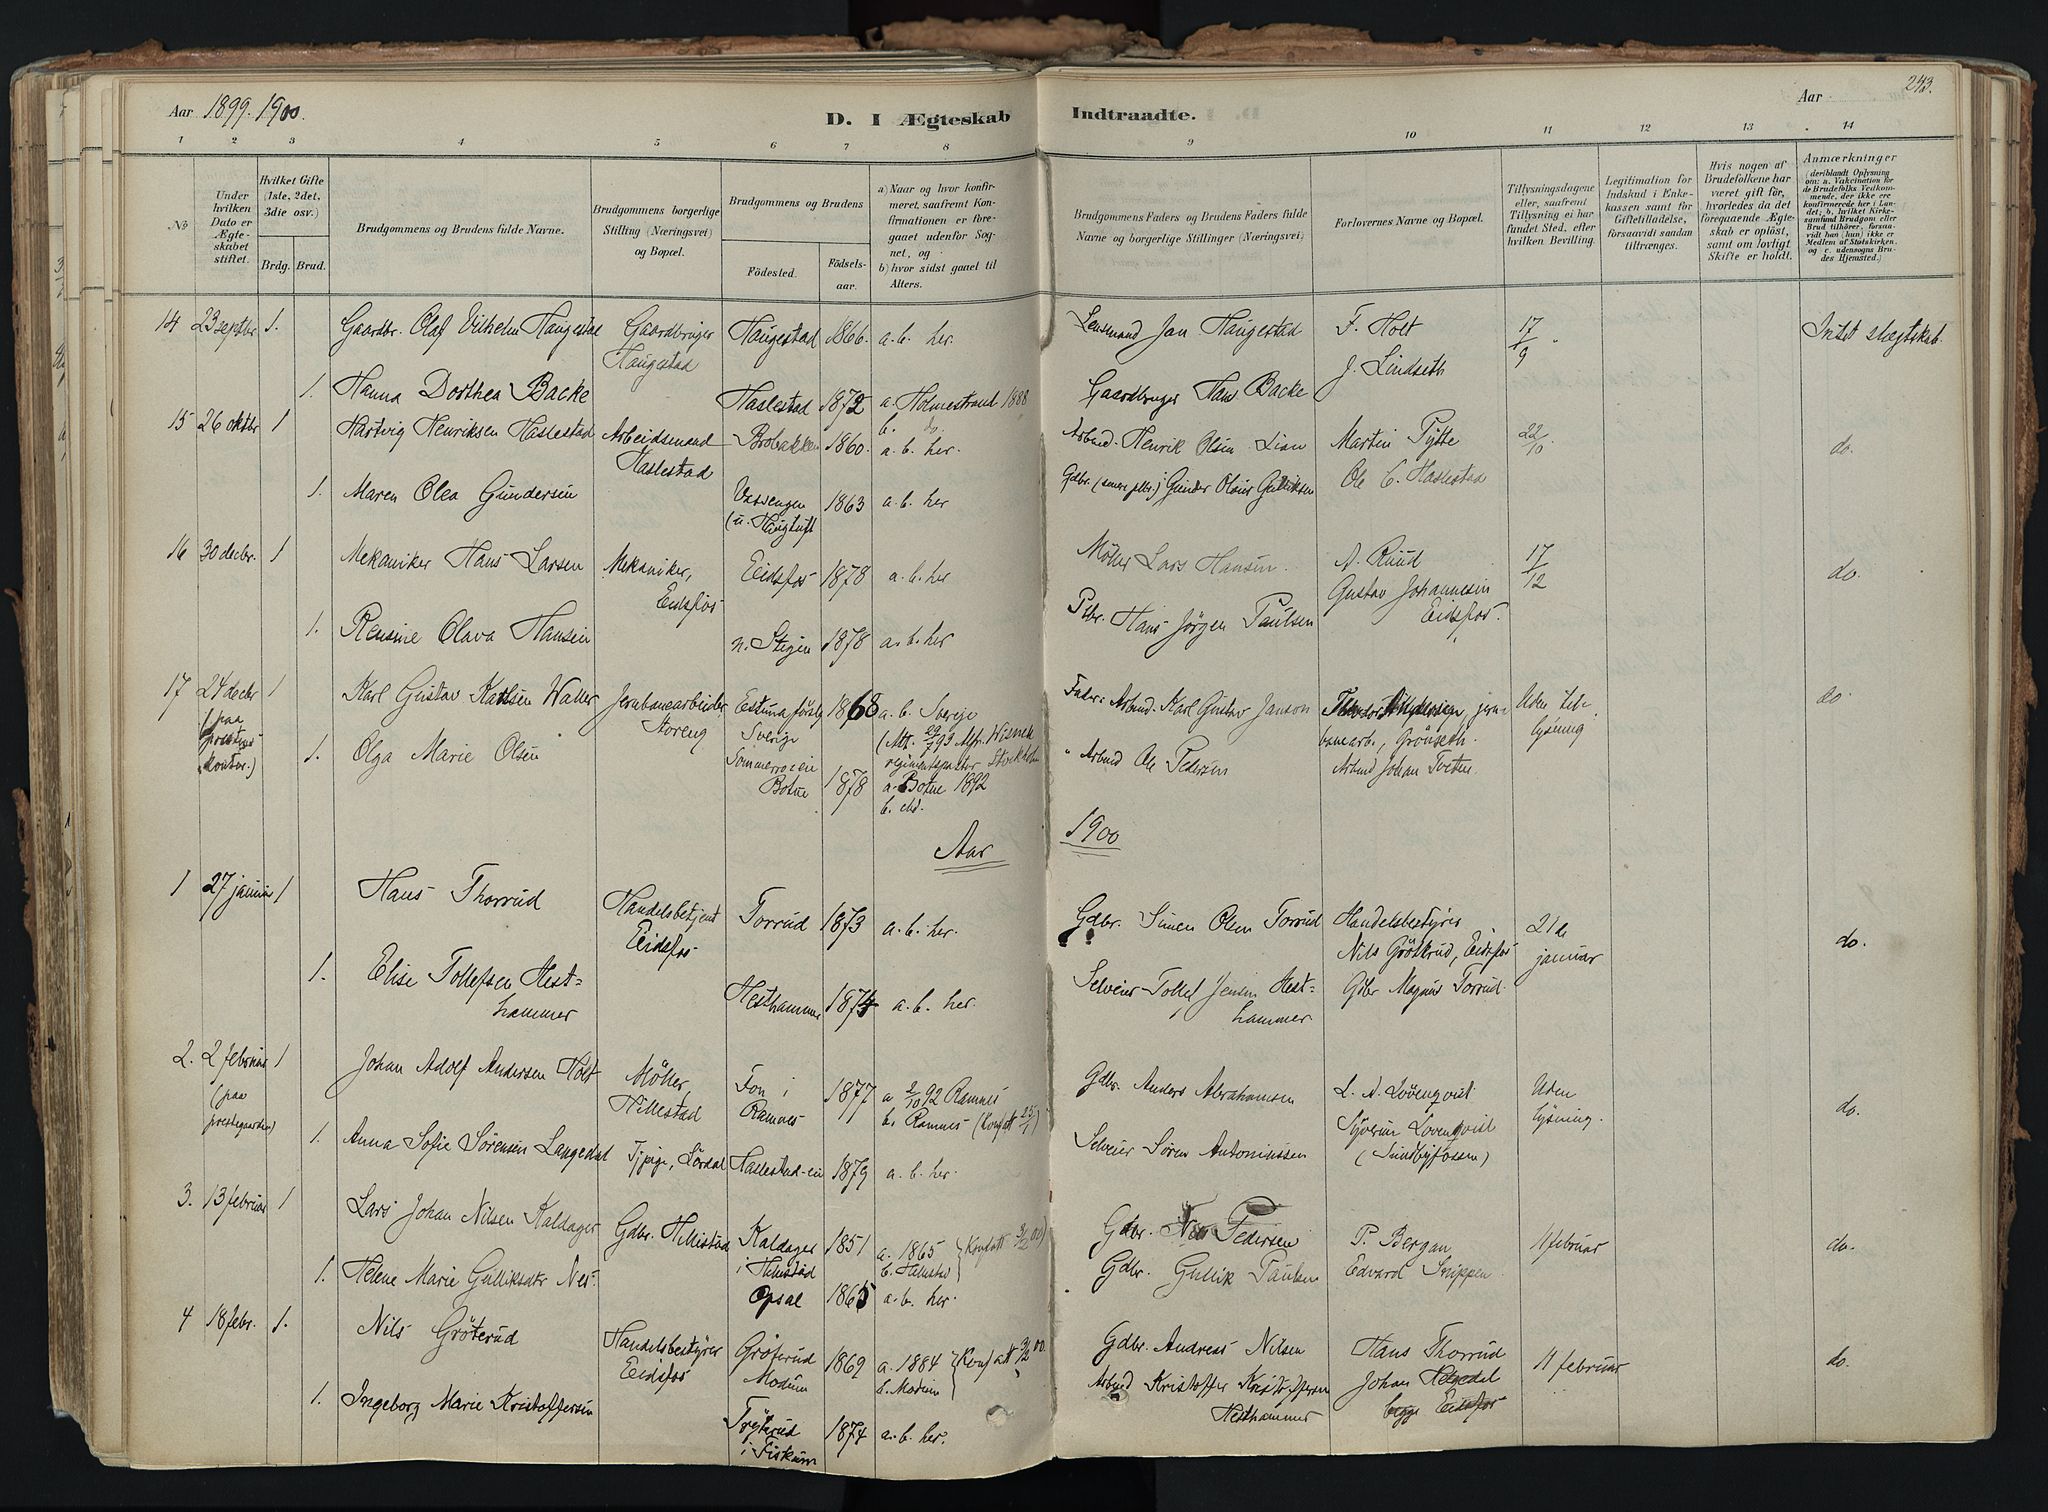 Aar 1899. 1900.
D. I Ægteskab Indtraadte.
Aar
243.
1 2 3 4 5 6 7 8 9 10 11 12 13 14
No
Under hvilken Dato er Ægteskabet stiftet.
Hvilket Gifte (1ste, 2det, 3die osv.)
Brdg. Brud.
Brudgommens og Brudens fulde Navne.
Brudgommens borgerlige Stilling (Næringsvei) og Bopæl.
Brudgommens og Brudens
Födested. Födselsaar.
a) Naar og hvor konfirmeret, saafremt Konfirmationen er foregaaet udenfor Sognet, og
b) hvor sidst gaaet til Alters.
Brudgommens Faders og Brudens Faders fulde Navne og borgerlige Stillinger (Næringsvei)
Forlovernes Navne og Bopæl.
Tillysningsdagene eller, saafremt Tillysning ei har fundet Sted, efter hvilken Bevilling.
Legitimation for Indskud i Enkekassen samt for Giftetilladelse, forsaavidt saadan tiltrænges.
Hvis nogen af Brudefolkene har været gift för, hvorledes da det foregaaende Ægteskab er oplöst, samt om lovligt Skifte er holdt.
Anmærkninger (deriblandt Oplysning om: a. Vakcination for de Brudefolks Vedkommende, der ikke ere konfirmerede her i Landet; b. hvilket Kirkesamfund Brudgom eller Brud tilhörer, forsaavidt han (hun) ikke er Medlem af Statskirken, og c. udensogns Brudes Hjemsted.)
14 23 septbr. 1. Gaardbr. Olaf Vilhelm Haugestad Gaardbruger Haugestad Haugestad 1866. a. b. her. Lensmand Jan Haugestad F. Holt 17/9 Intet slægtskab.
1. Hanna Dorthea Backe Haslestad 1872 a. Holmestrand 1888 b. do. Gaardbruger Hans Backe J. Lindseth
15 26 oktbr 1 Hartvig Henriksen Haslestad Arbeidsmand Haslestad Brobakken 1860. a. b. her. Arbmd. Henrik Olsen Lian Martin Pytte 22/10 do.
1. Maren Olea Gundersen (u. Haugtuft 1863 a. b. her Gdbr. Gunder Olaus Gulliksen Ole C. Haslestad
16 30 decbr. 1 Mekaniker Hans Larsen Mekaniker, Eidsfos Eidsfos 1878 a. b. her Möller Lars Hansen. A. Ruud 17/12 do.
1. Rensine Olava Hansen n. Stigen 1878 a. b. her Plbr. Hans Jörgen Paulsen Gustav Johannesen Eidsfos.
17 24 decbr (paa prestens kontor.) 1 Karl Gustav Karlsen Waller Jernbanearbeider, Storeng Estuna försl Sverige 1868 a. b. Sverige (Att. 29/7 93 regimentspastor Stockholm Fader: Arbmd. Karl Gustav Janson jernbanearb., Grönseth. Uden tillysning do
1. Olga Marie Olsen Sommerroen Botne 1878 a. Botne 1892 b. do. " Arbmd Ole Pedersen Arbmd Johan Tveten
Aar 1900
1 27 januar 1 Hans Thorrud Handelsbetjent Eidsfos Torrud 1873 a. b. her. Gdbr. Simen Olsen Torrud Handelsbestyrer Nils Gröterud, Eidsfos 21de januar do.
1. Elise Tollefsen Hesthammer Hesthammer 1874 a. b. her. Selveier Tollef Jensen Hesthammer Gdbr Magnus Torrud.
2. 2 februar (paa prestegaarden) 1 Johan Adolf Andersen Holt Möller, Hillestad Fon i Ramnes 1877 a 2/10 92 Ramnes b. Ramnes (Konfatt 25/1) Gdbr. Anders Abrahamsen L. A. Lövenqvist Uden lysning. do.
1. Anna Sofie Sörensen Langedal Tjpige, Lördal Haslestad-eie 1879 a. b. her. Selveier Sören Antoniussen Syverin Lovenqvist (Sundbyfossen)
3. 13 februar 1 Lars Johan Nilsen Kaldager Gdbr. Hillestad Kaldager i Hillestad 1851 a. 1865 b. Hillestad (Konfatt 3/2 00) Gdbr. Nils Pedersen P. Bergan 11 februar do.
1. Helene Marie Gulliksdtr Nes Opsal 1865 a. b. her. Gdbr. Gullik Paulsen Edvard Snippen.
4 18 febr. 1. Nils Gröterud Handelsbestyrer Eidsfos Gröterud Modum 1869 a. 1884 b. Modum (Konfatt 3/2 00. Gdbr. Andreas Nilsen Hans Thorrud 11 februar do.
1. Ingeborg Marie Kristoffersen Tryterud i Fiskum 1874 a. b. her. Arbmd Kristoffer Kristoffersen Hesthammer Johan begge Eidsfos